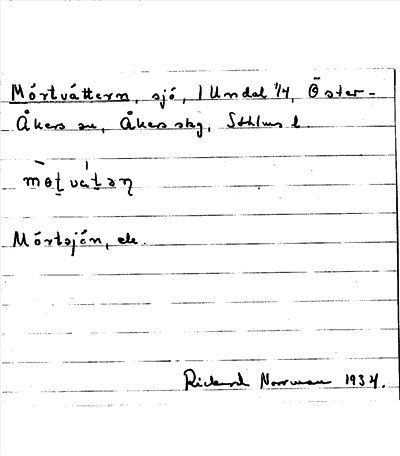 Mörtvättern, sjö, 1 Undal 1/4, Öster-
Åkers sn, Åkers skg, Sthlms l.
Mörtsjön, ek.
Rickard Norrman 1934.